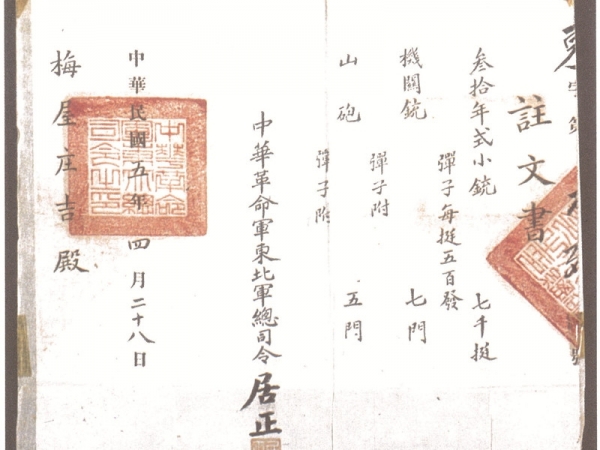 註文書
叁拾年式小銃 七千挺
彈子每挺五百發
機關銃 七門
彈子附
山砲 五門
彈子附
中華革命軍東北軍總司令 居正
中華民國五年四月二十八日
梅屋庄吉殿